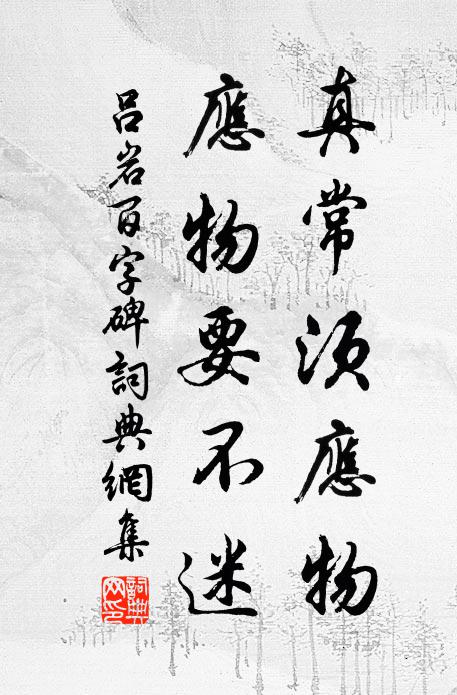 真常須應物
應物要不迷
呂岩百字碑詞典網集